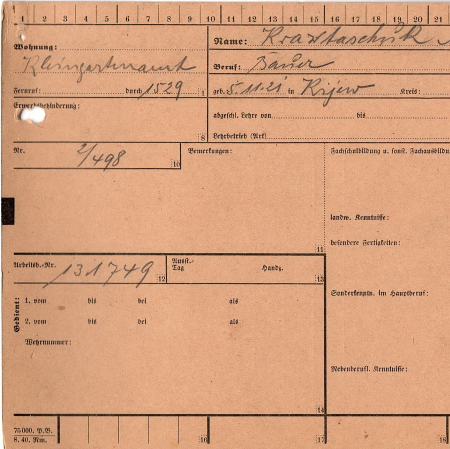 1 2 3 4 5 6 7 8 9 10 10 11 12 13 14 15 16 17 18 19 20 21
Wohnung:
Name: Kraxtaschuk
Kleingartenamt
Beruf: Bauer
Fernruf: durch 1529 1
geb. 5.11.21 in Kijew Kreis:
Erwerbsbehinderung:
8
abgeschl. Lehre von bis
Lehrbetrieb (Art)
Nr. 2/498 10
Bemerkungen:
11
Fachschulbildung u. sonst. Fachausbildu
landw. Kenntnisse:
besondere Fertigkeiten:
Arbeitsb.-Nr. 131749 12
Ausst.-Tag Handz. 13
Gedient:
1. vom bis bei als
2. vom bis bei als
Wehrnummer:
14
Sonderkenntn. im Hauptberuf:
Nebenberufl. Kenntnisse:
75 000. P.B.
8. 40. Nm.
16 17 18